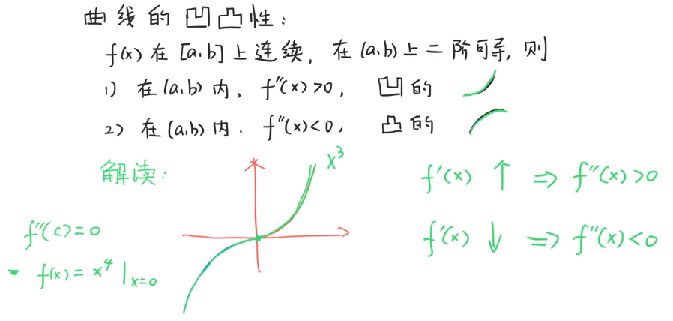 曲线的凹凸性:
f(x)在[a,b]上连续,在(a,b)上二阶可导,则
1) 在(a,b)内, f''(x)>0, 凹的
2) 在(a,b)内, f''(x)<0, 凸的
解读:
x³
f'(x) ↑ ⇒ f''(x)>0
f''(c)=0
f'(x) ↓ ⇒ f''(x)<0
- f(x)=x⁴|x=0